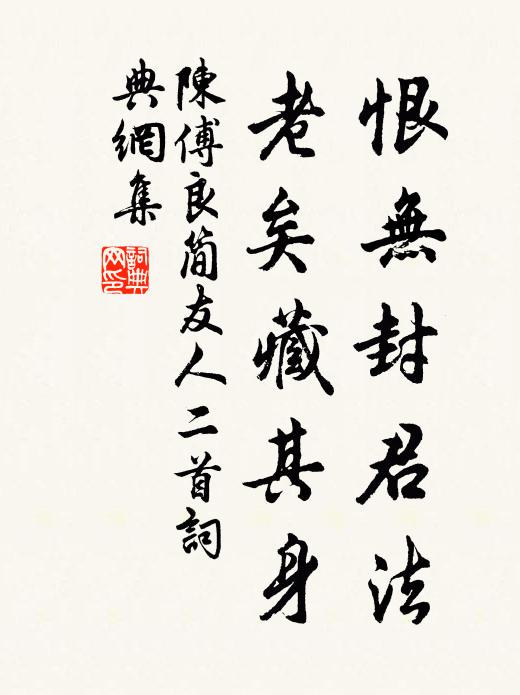 恨無封君法
老矣藏其身
陳傅良簡友人二首詞
典網集
詞典網印